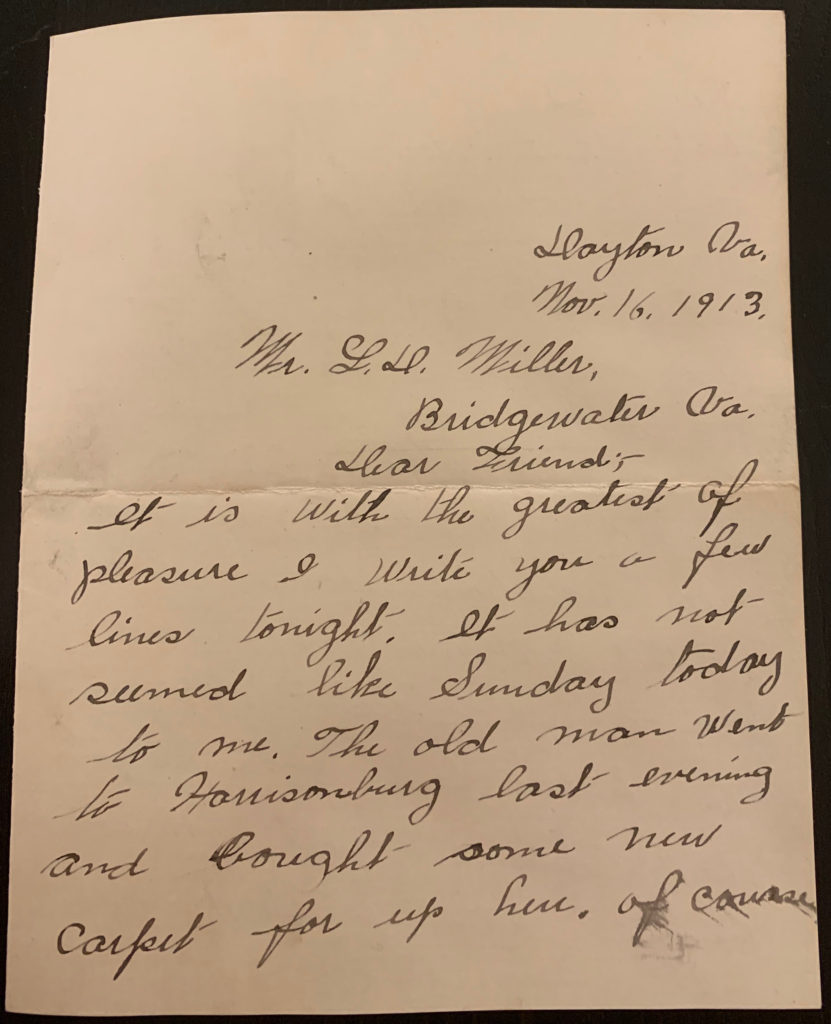 Dayton Va.
Nov. 16. 1913.
Mr. L. D. Miller,
Bridgewater Va.
Dear Friend;-
It is with the greatest of
pleasure I write you a few
lines tonight. It has not
seemed like Sunday today
to me. The old man went
to Harrisonburg last evening
and bought some new
carpet for up here. of course